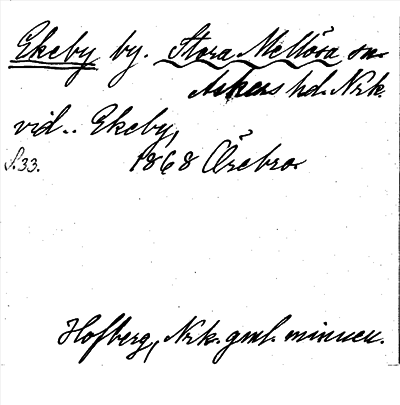 Ekeby by. Stora Mellösa sn.
Askers hd. Nrk.
vid.. Ekeby,
S.33. 1868 Örebro.
Hofberg, Nrk. gml. minnen.